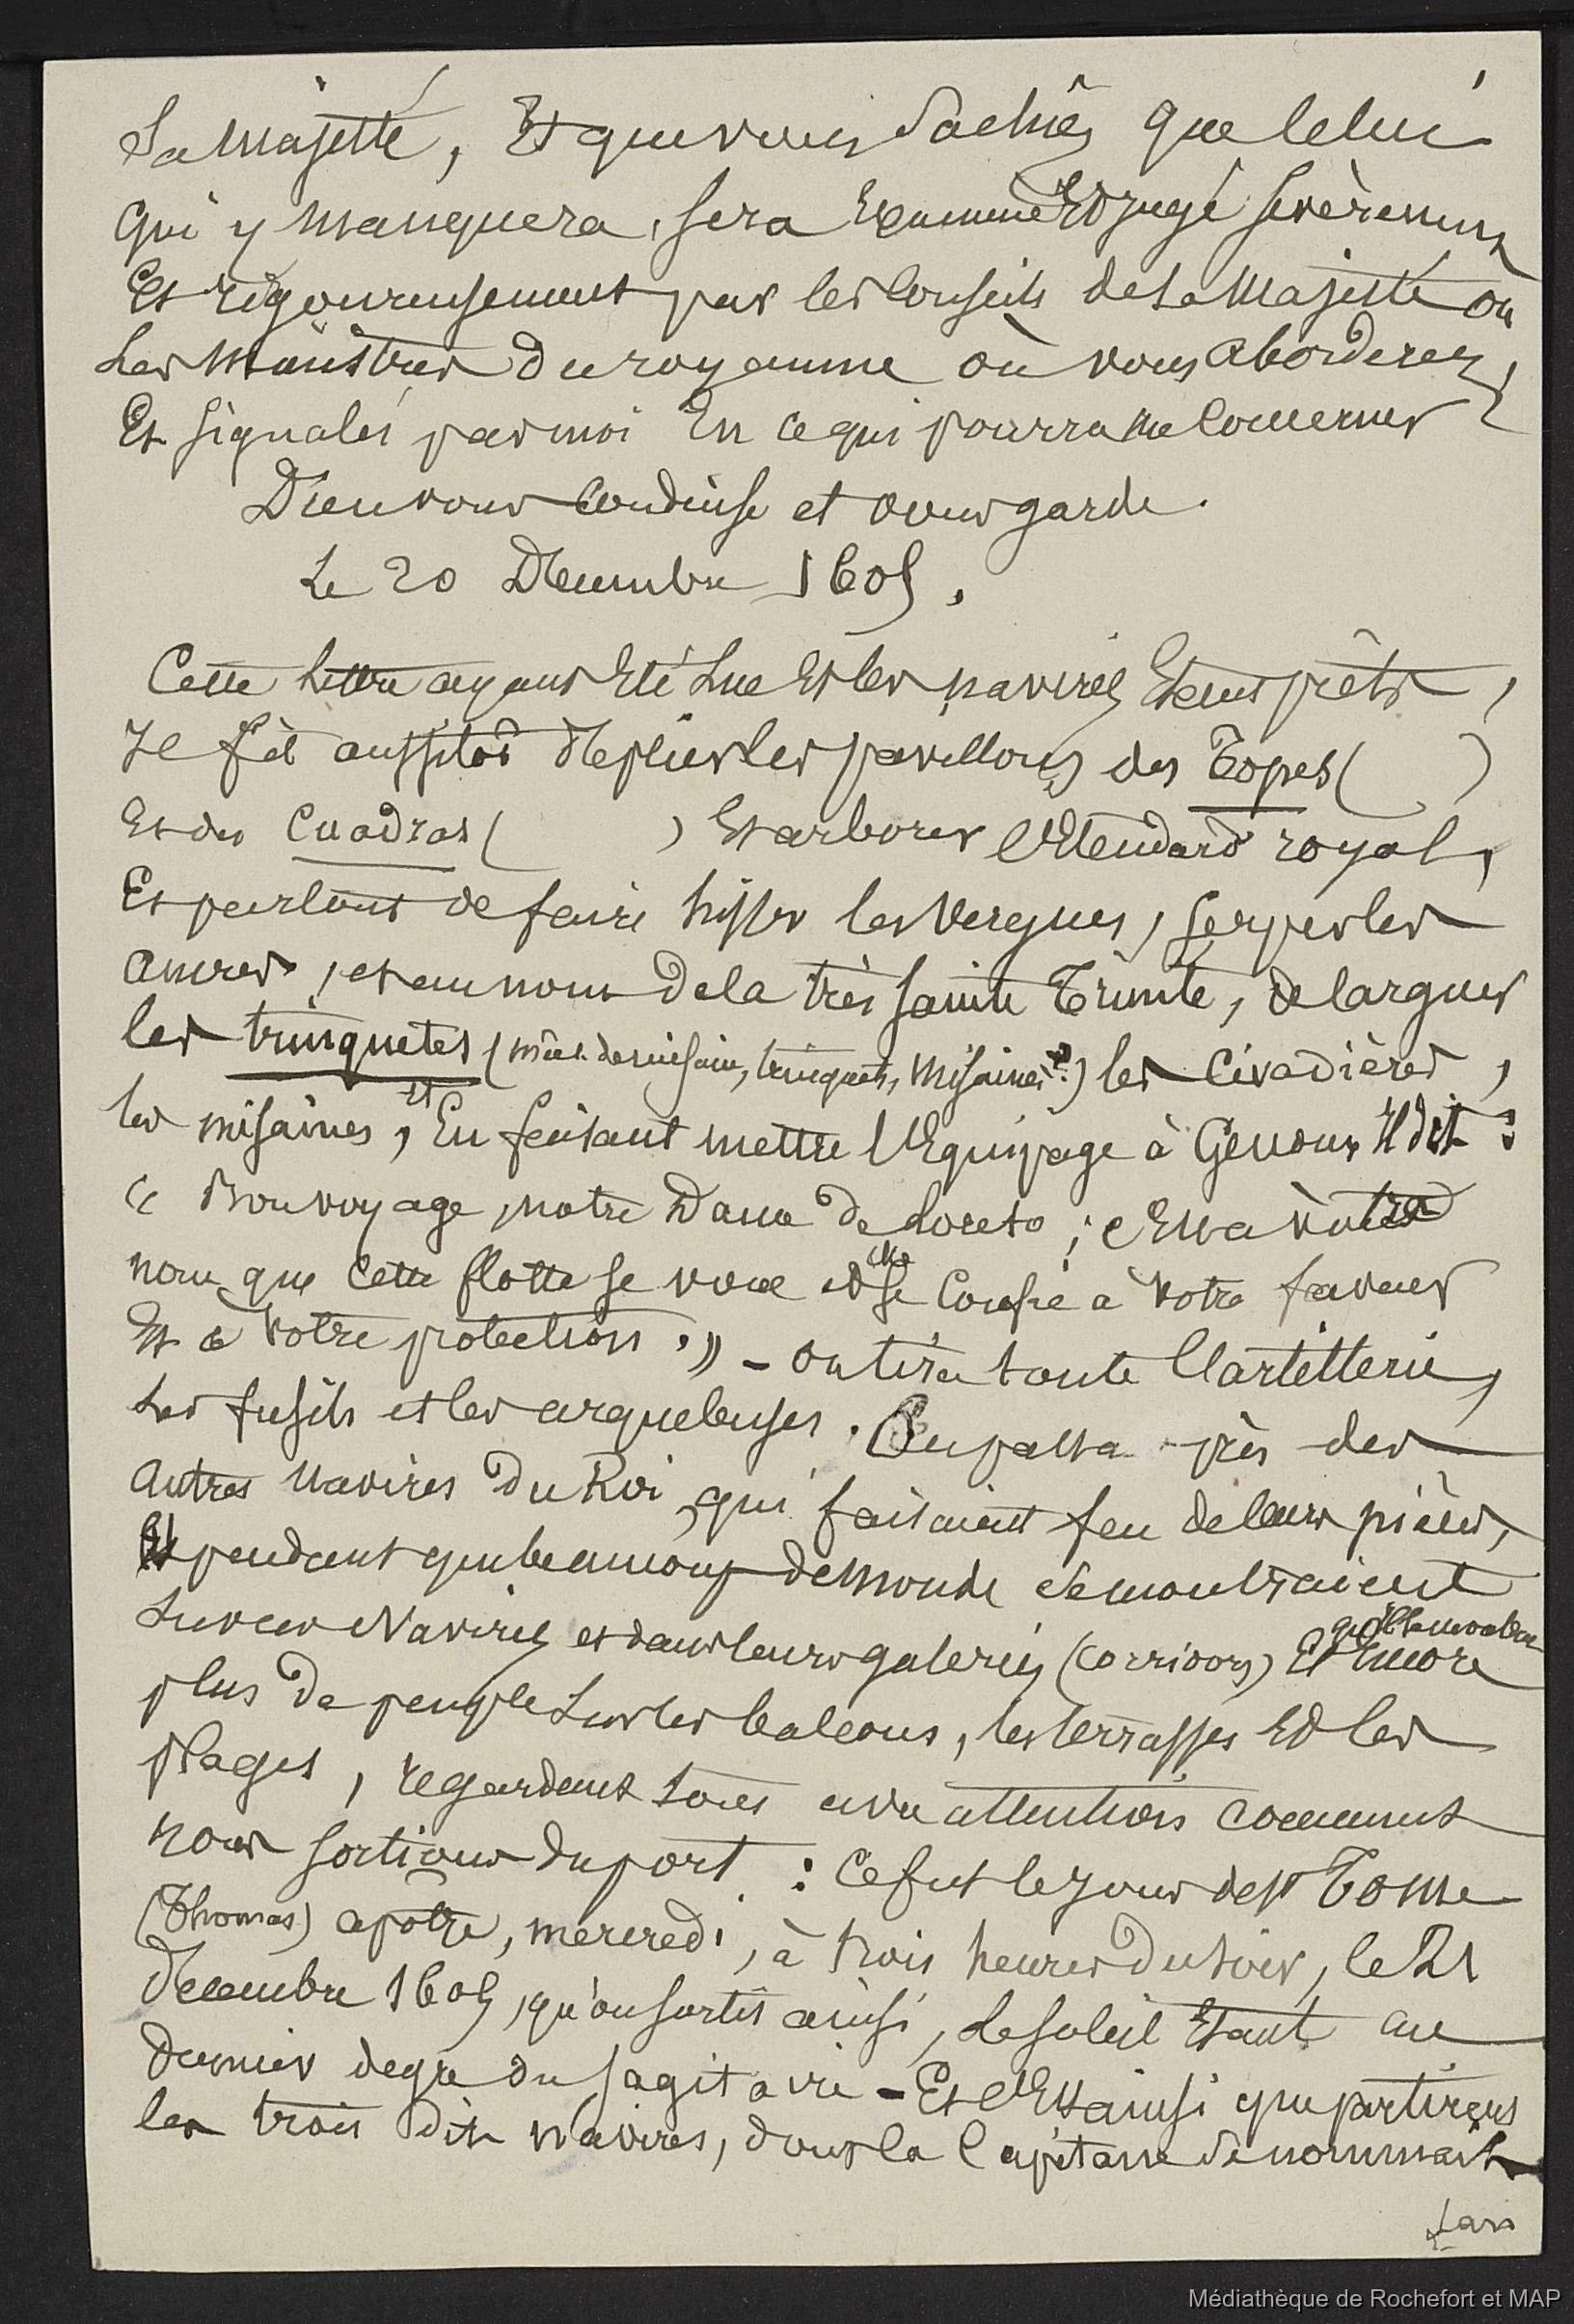 Sa Majesté, Et que vous Sachiés que celui
qui y manquera, sera Examiné Et jugé sevèrement
Et rigoureusement par les Conseils de Sa Majesté où
Les Ministres du royaume où vous aborderez,
Et signalés par moi En ce qui pourra me Concerner
Dieu vous Conduise et vous garde.
Le 20 Décembre 1605,
Cette Lettre ayant Eté Lue Et les navires Etant prêts,
Il fit aussitôt déplier les pavillons des Topes (     )
Et des Cuadras (     ) Et arborer l'Etendard royal,
Et parlant de faire hisser les Vergues, serper les
ancres, et au nom de la très sainte Trinité, de larguer
les trinquetes (mâts de misaine, trinquets, misaines?) les Civadières,
les misaines, et En faisant mettre l'Equipage à Genoux Il dit :
« Bon voyage, notre Dame de Loreto ; c'Est à votre
nom que cette flotte se voue et elle se Confie à votre faveur
Et à Votre protection. » — on tira toute l'artillerie,
Les fusils et les arquebuses. On passa près des
autres navires du Roi, qui faisaient feu de leurs pièces,
Et pendant que beaucoup de monde se montraient
Sur ces Navires et dans leurs galeries (corridors) Et Encore
plus de peuple Sur les balcons, les terrasses Et les
plages, regardant tous avec attention comment
nous sortions du port : Ce fut le jour de St Tome
(Thomas) apôtre, mercredi, à trois heures du soir, le 21
Décembre 1605, qu'on sortit ainsi, Le soleil Etant au
dernier degré du sagitaire — Et c'Est ainsi que partirent
les trois dits navires, dont la Capitane se nommait
San
Médiathèque de Rochefort et MAP